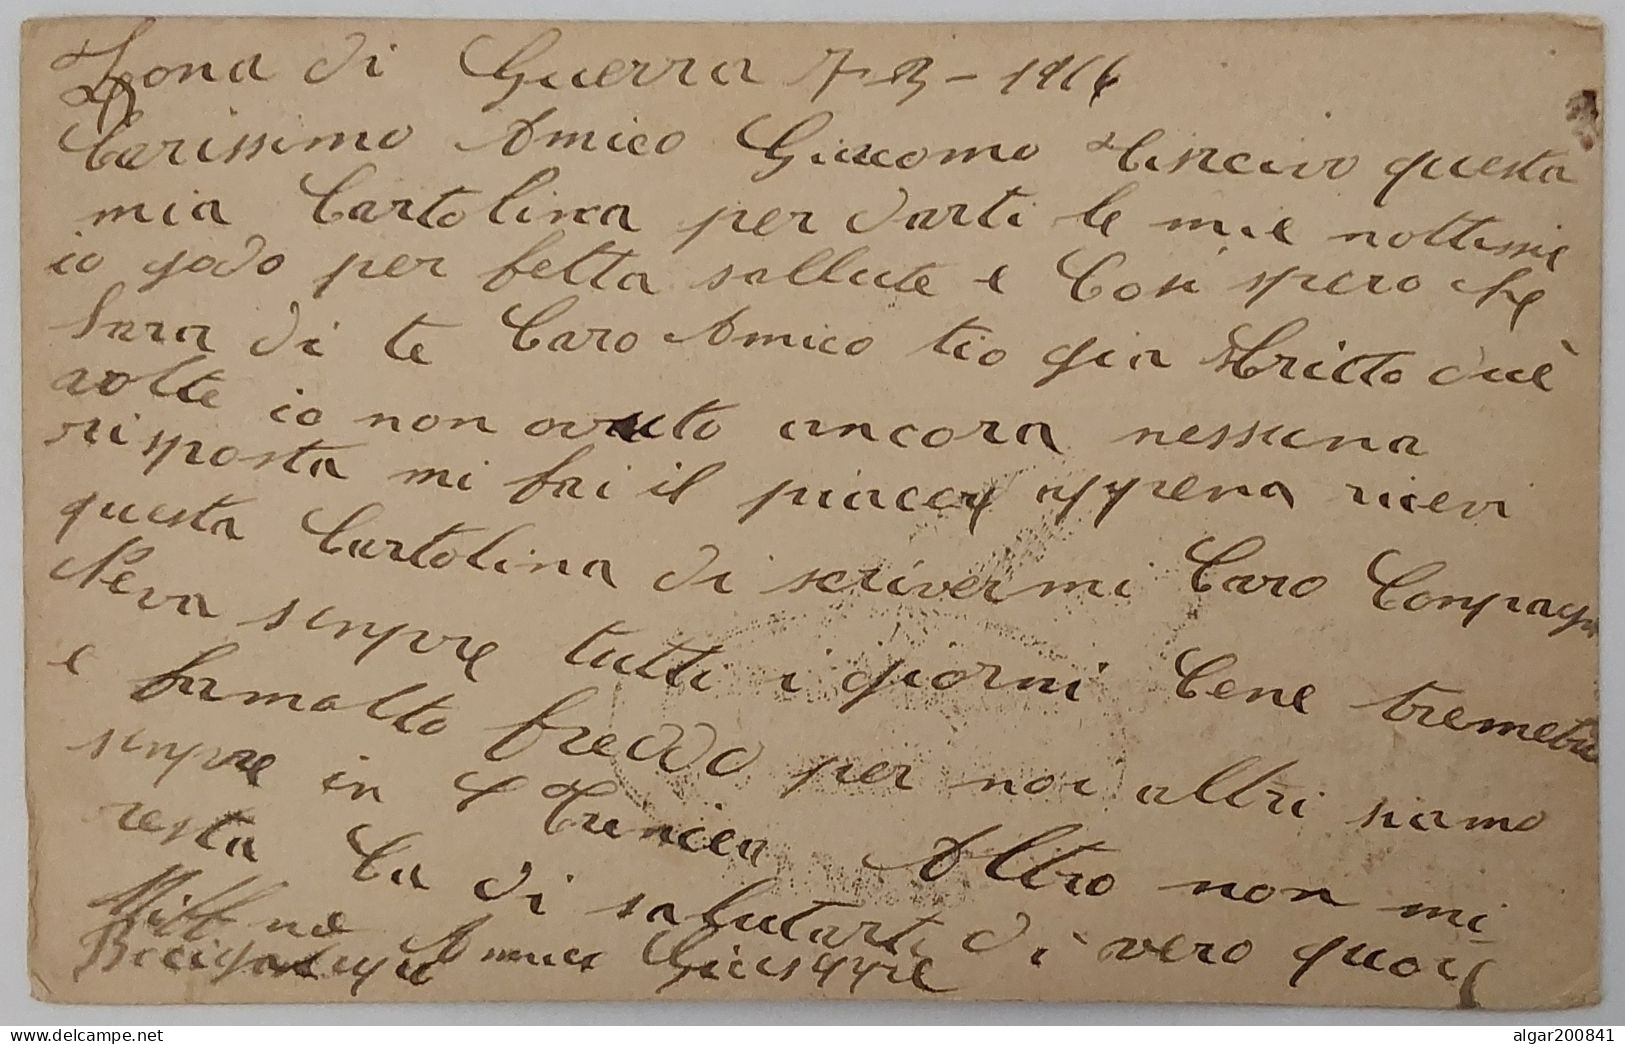 Zona di Guerra 7-2-1916
Carissimo Amico Giacomo tiscrivo questa
mia Cartolina per darti le mie nottissie
io godo per fetta sallute e Cosi spero che
Sara di te Caro Amico tio gia Scritto due
volte io non avuto ancora nessuna
risposta mi fai il piacer appena ricevi
questa Cartolina di scrivermi Caro Conpagn
Neva senpre tutti i giorni Cene tremetri
e famolto freddo per noi altri siamo
senpre in trincea Altro non mi
resta Ca di salutarti di vero quor
Amico Giuseppe
algar200841